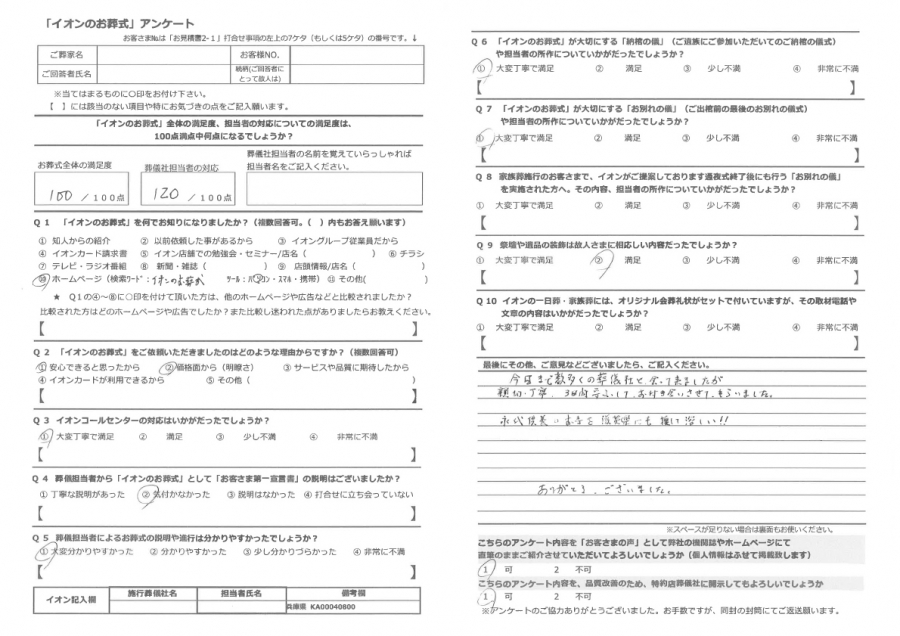 「イオンのお葬式」アンケート
お客さま№は「お見積書2-1」打合せ事項の左上の7ケタ（もしくは5ケタ）の番号です。↓
ご葬家名 お客様NO.
ご回答者氏名 続柄(ご回答者にとって故人は)
※当てはまるものに○印をお付け下さい。
【　】には該当のない項目や特にお気づきの点をご記入願います。
「イオンのお葬式」全体の満足度、担当者の対応についての満足度は、
100点満点中何点になるでしょうか？
お葬式全体の満足度
100 ／100点
葬儀社担当者の対応
120 ／100点
葬儀社担当者の名前を覚えていらっしゃれば
担当者名をご記入ください。
Q 1　「イオンのお葬式」を何でお知りになりましたか？（複数回答可。（　）内もお答え願います）
① 知人からの紹介　② 以前依頼した事があるから　③ イオングループ従業員だから
④ イオンカード請求書　⑤ イオン店舗での勉強会・セミナー/店名（　）⑥ チラシ
⑦ テレビ・ラジオ番組　⑧ 新聞・雑誌（　）⑨ 店頭情報/店名（　）
⑩ ホームページ（検索ワード：イオンのお葬式　ツール：パソコン・スマホ・携帯）⑪ その他(　)
★　Q１の④～⑧に○印を付けて頂いた方は、他のホームページや広告などと比較されましたか？
比較された方はどのホームページや広告でしたか？また比較し迷われた点がありましたらお教えください。
【　】
Q 2　「イオンのお葬式」をご依頼いただきましたのはどのような理由からですか？（複数回答可）
① 安心できると思ったから　② 価格面から（明瞭さ）　③ サービスや品質に期待したから
④ イオンカードが利用できるから　⑤ その他（　）
【　】
Q 3　イオンコールセンターの対応はいかがだったでしょうか？
① 大変丁寧で満足　②　満足　③　少し不満　④　非常に不満
【　】
Q 4　葬儀担当者から「イオンのお葬式」として「お客さま第一宣言書」の説明はございましたか？
① 丁寧な説明があった　② 気付かなかった　③ 説明はなかった　④ 打合せに立ち会っていない
【　】
Q 5　葬儀担当者によるお葬式の説明や進行は分かりやすかったでしょうか？
① 大変分かりやすかった　② 分かりやすかった　③ 少し分かりづらかった　④ 非常に不満
【　】
イオン記入欄 施行葬儀社名 担当者氏名 備考欄
兵庫県　KA00040800
Q 6　「イオンのお葬式」が大切にする「納棺の儀」（ご遺族にご参加いただいてのご納棺の儀式）
や担当者の所作についていかがだったでしょうか？
① 大変丁寧で満足　②　満足　③　少し不満　④　非常に不満
【　】
Q 7　「イオンのお葬式」が大切にする「お別れの儀」（ご出棺前の最後のお別れの儀式）
や担当者の所作についていかがだったでしょうか？
① 大変丁寧で満足　②　満足　③　少し不満　④　非常に不満
【　】
Q 8　家族葬施行のお客さまで、イオンがご提案しております通夜式終了後にも行う「お別れの儀」
を実施された方へ。その内容、担当者の所作についていかがだったでしょうか？
①　大変丁寧で満足　②　満足　③　少し不満　④　非常に不満
【　】
Q 9　祭壇や遺品の装飾は故人さまに相応しい内容だったでしょうか？
①　大変丁寧で満足　②　満足　③　少し不満　④　非常に不満
【　】
Q 10　イオンの一日葬・家族葬には、オリジナル会葬礼状がセットで付いていますが、その取材電話や
文章の内容はいかがだったでしょうか？
①　大変丁寧で満足　②　満足　③　少し不満　④　非常に不満
【　】
最後にその他、ご意見などございましたら、ご記入ください。
今日まで数多くの葬儀社と会って来ましたが
親切・丁寧、3日間安心して、お付き合いさせてもらいました。
ありがとう、ございました。
※スペースが足りない場合は裏面もお使いください。
こちらのアンケート内容を「お客さまの声」として弊社の機関誌やホームページにて
直筆のままご紹介させていただいてよろしいでしょうか（個人情報はふせて掲載致します）
1　可　2　不可
こちらのアンケート内容を、品質改善のため、特約店葬儀社に開示してもよろしいでしょうか
1　可　2　不可
※アンケートのご協力ありがとうございました。お手数ですが、同封の封筒にてご返送願います。